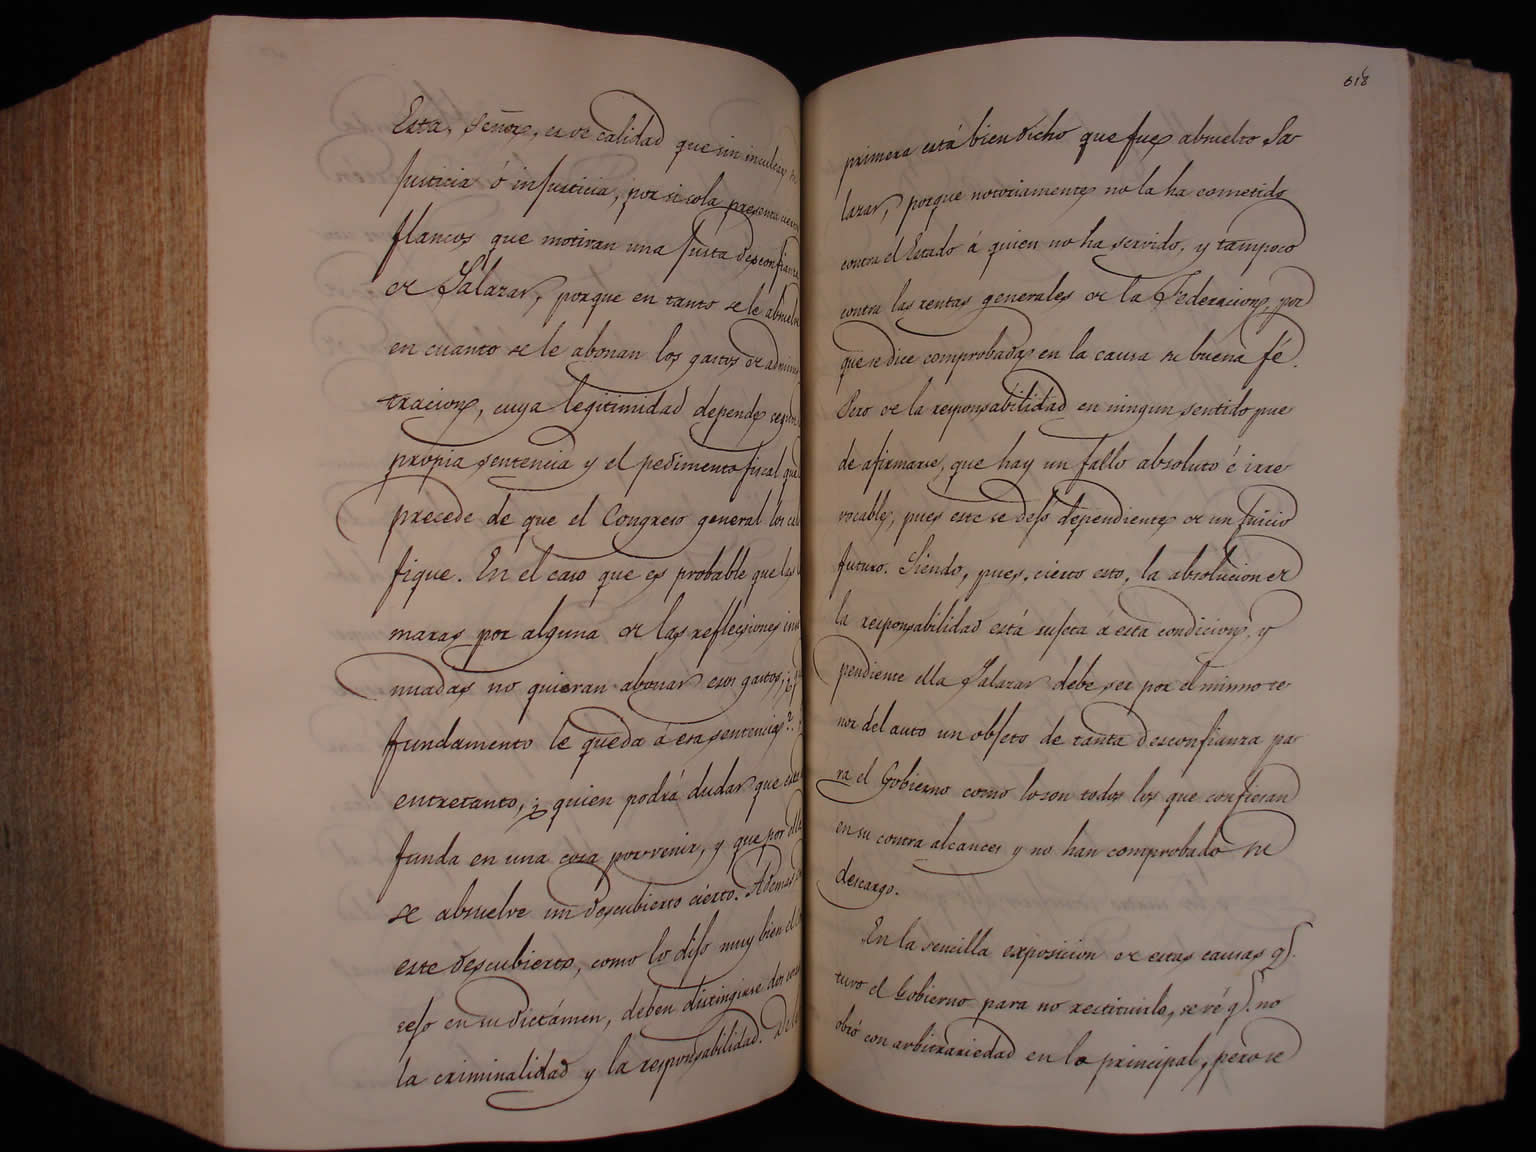 Esta, Señor, es de calidad que sin inculcar su
justicia ó injusticia, por si sola presenta
flancos que motivan una justa desconfianza
de Salazar, porque en tanto se le absuelve
en cuanto se le abonan los gastos de adminis
tracion, cuya legitimidad depende segun
propia sentencia y el pedimento fiscal que
precede de que el Congreso general los cali
fique. En el caso que es probable que las
maras por alguna de las reflecsiones insi
nuadas no quieran abonar esos gastos, ¿
fundamento le queda á esa sentencia?
entretanto, ¿quien podrá dudar que esta
funda en una cosa porvenir, y que por ella
se absuelve un descubierto cierto. Ademas
este descubierto, como lo dijo muy bien el
sejo en su dictámen, deben distinguirse dos cosas
la criminalidad y la responsabilidad. De la
618
primera está bien dicho que fue absuelto Sa
lazar, porque notoriamente no la ha cometido
contra el Estado á quien no ha servido, y tampoco
contra las rentas generales de la Federacion, por
que se dice comprobada en la causa su buena fé.
Pero de la responsabilidad en ningun sentido pue
de afirmarse, que hay un fallo absoluto é irre
vocable, pues este se dejó dependiente de un juicio
futuro. Siendo, pues, cierto esto, la absolucion de
la responsabilidad está sujeta á esta condicion, y
pendiente ella Salazar debe ser por el mismo te
nor del auto un objeto de tanta desconfianza pa
ra el Gobierno como lo son todos los que confiesan
en su contra alcances y no han comprobado su
descargo.
En la sencilla exposicion de estas causas q.
tuvo el Gobierno para no restituirlo, se vé q. no
obró con arbitrariedad en lo principal, pero se